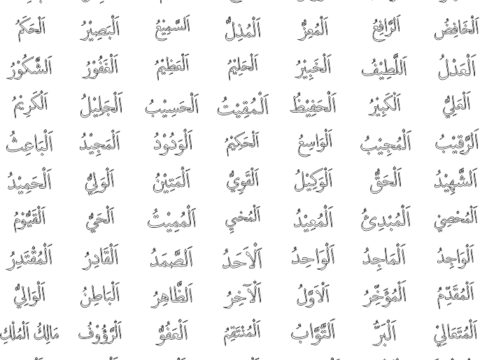 اَلْخَافِضُ اَلرَّافِعُ اَلْمُعِزُّ اَلْمُذِلُّ اَلسَّمِيْعُ اَلْبَصِيْرُ اَلْحَكَمُ
اَلْعَدْلُ اَللَّطِيْفُ اَلْخَبِيْرُ اَلْحَلِيْمُ اَلْعَظِيْمُ اَلْغَفُوْرُ اَلشَّكُوْرُ
اَلْعَلِيُّ اَلْكَبِيْرُ اَلْحَفِيْظُ اَلْمُقِيْتُ اَلْحَسِيْبُ اَلْجَلِيْلُ اَلْكَرِيْمُ
اَلرَّقِيْبُ اَلْمُجِيْبُ اَلْوَاسِعُ اَلْحَكِيْمُ اَلْوَدُوْدُ اَلْمَجِيْدُ اَلْبَاعِثُ
اَلشَّهِيْدُ اَلْحَقُّ اَلْوَكِيْلُ اَلْقَوِيُّ اَلْمَتِيْنُ اَلْوَلِيُّ اَلْحَمِيْدُ
اَلْمُحْصِيْ اَلْمُبْدِئُ اَلْمُعِيْدُ اَلْمُحْيِيْ اَلْمُمِيْتُ اَلْحَيُّ اَلْقَيُّوْمُ
اَلْوَاجِدُ اَلْمَاجِدُ اَلْوَاحِدُ اَلْاَحَدُ اَلصَّمَدُ اَلْقَادِرُ اَلْمُقْتَدِرُ
اَلْمُقَدِّمُ اَلْمُؤَخِّرُ اَلْاَوَّلُ اَلْآخِرُ اَلظَّاهِرُ اَلْبَاطِنُ اَلْوَالِيُّ
اَلْمُتَعَالِيْ اَلْبَرُّ اَلتَّوَّابُ اَلْمُنْتَقِمُ اَلْعَفُوُّ اَلرَّؤُوْفُ مَالِكُ الْمُلْكِ